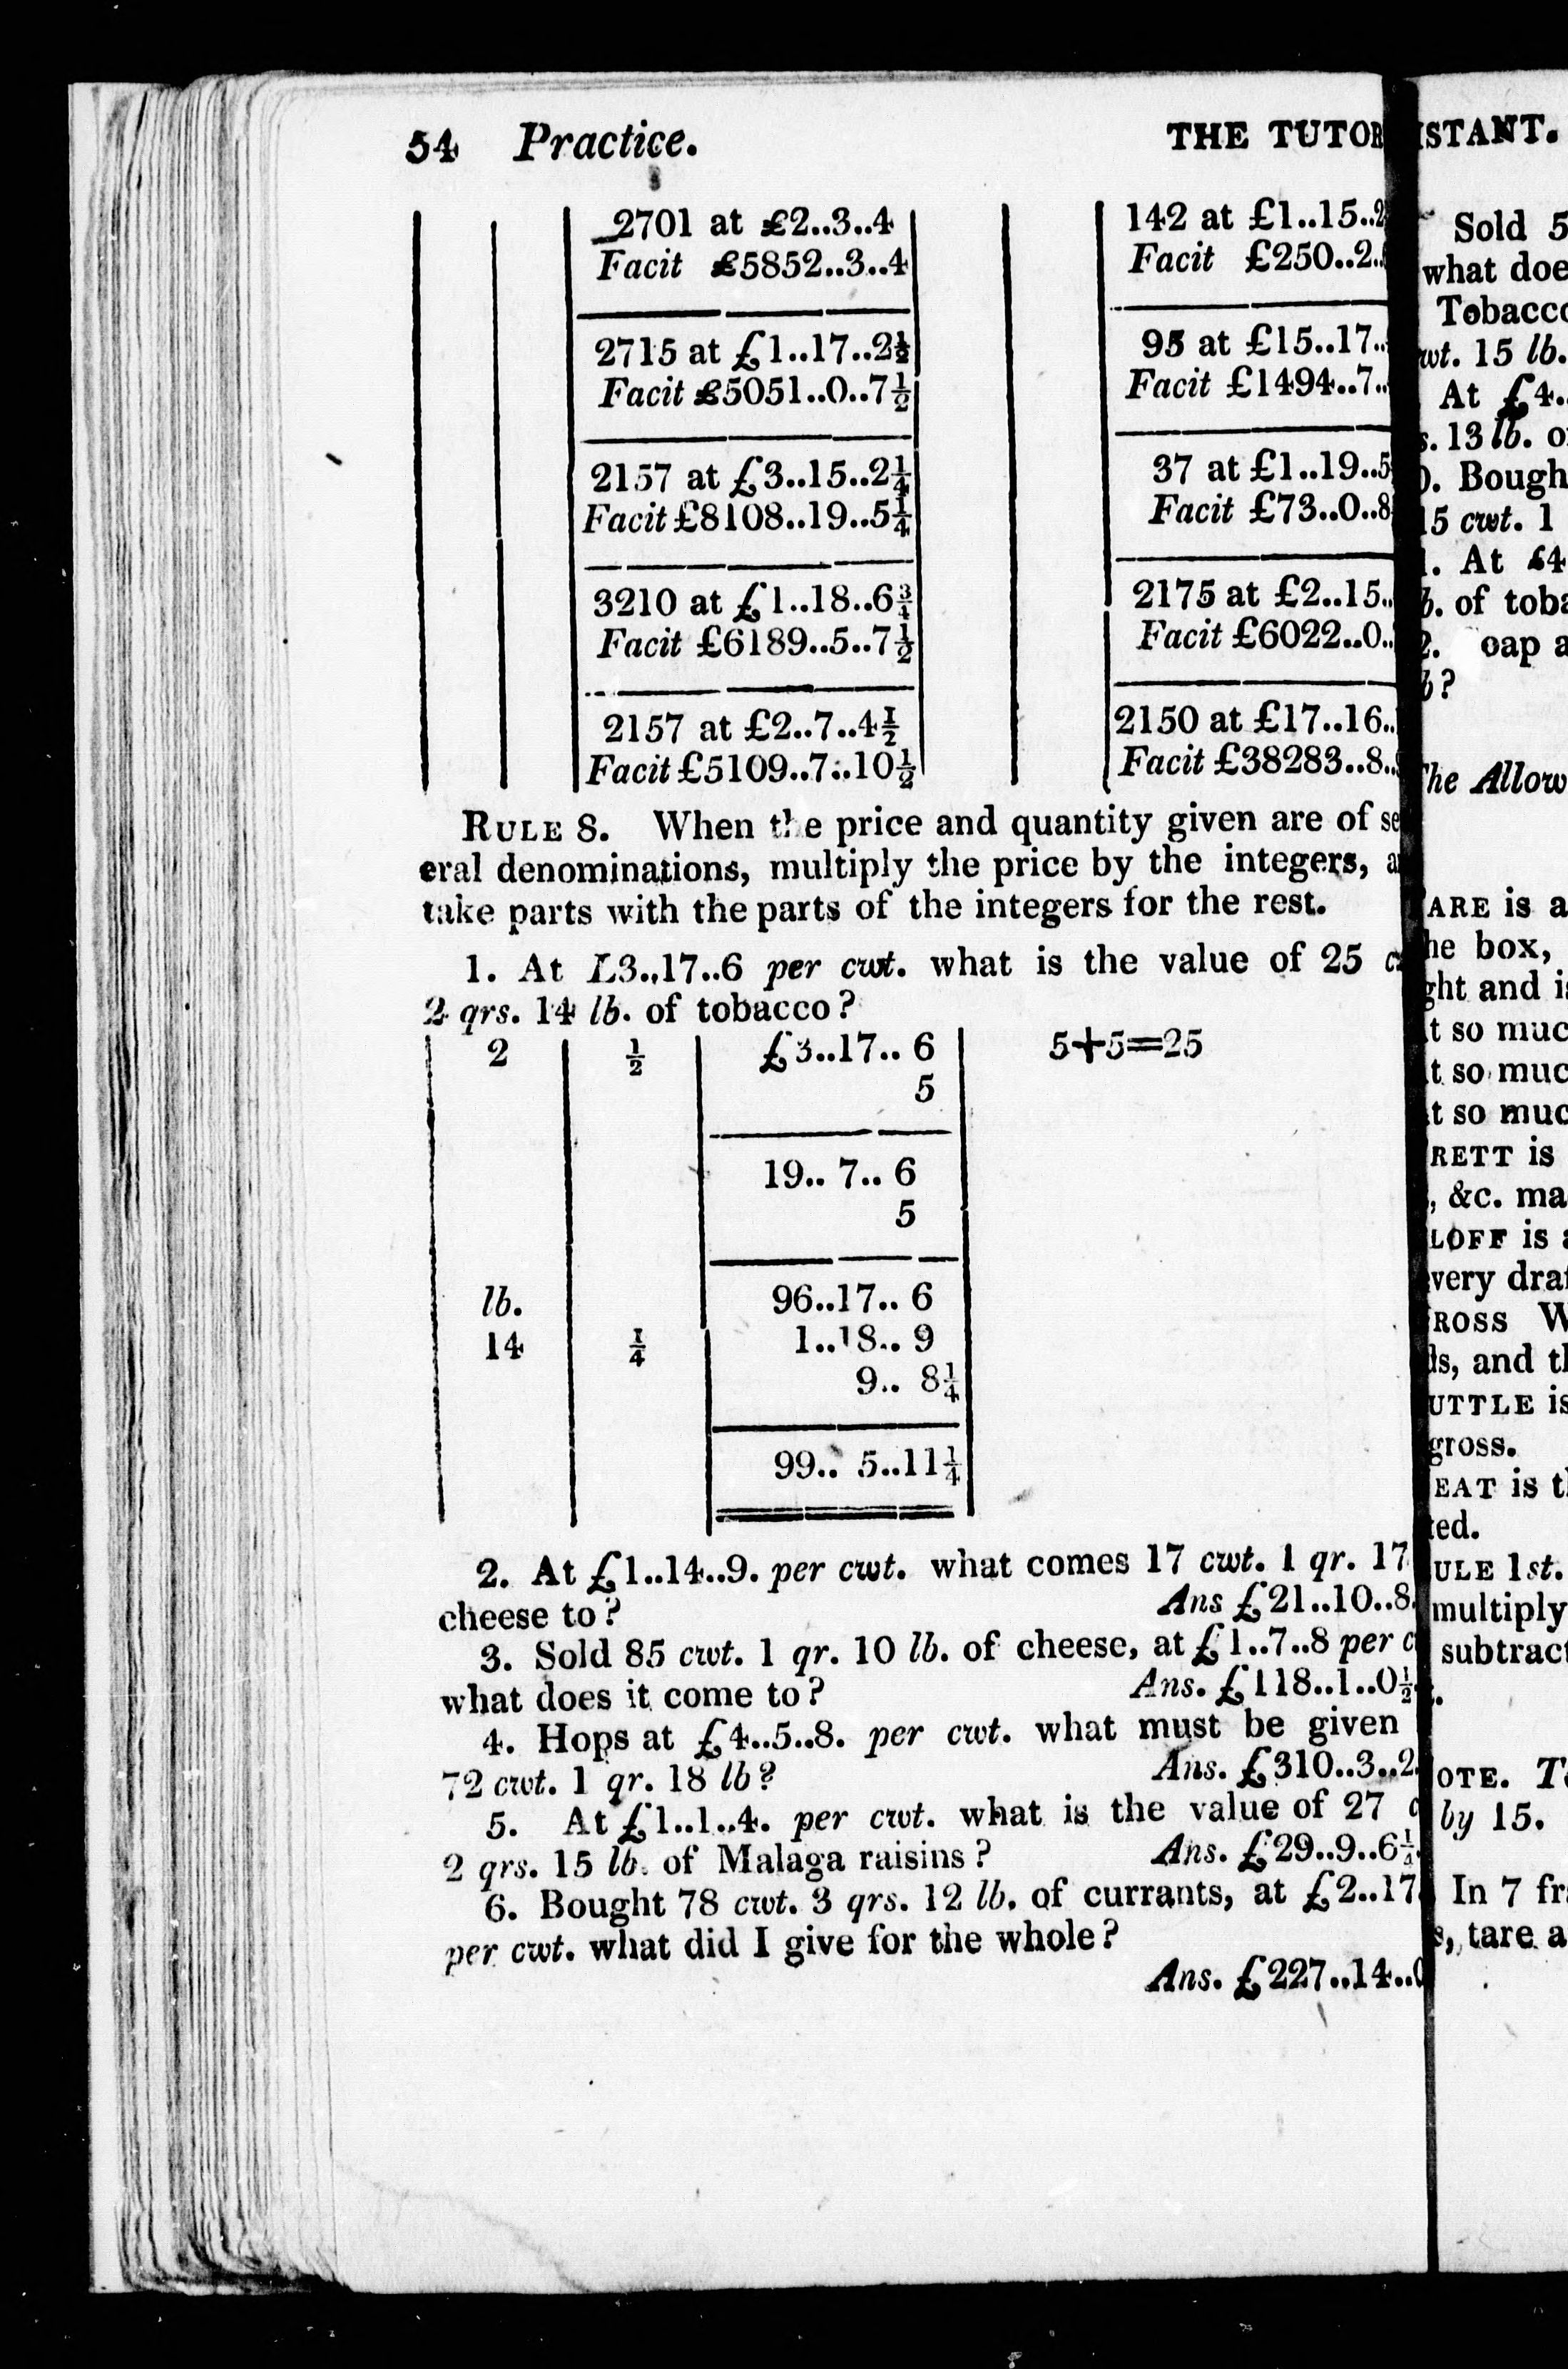 54 Practice. THE TUTOR
2701 at £2..3..4
Facit £5852..3..4
2715 at £1..17..2½
Facit £5051..0..7½
2157 at £3..15..2¼
Facit £8108..19..5¼
3210 at £1..18..6¾
Facit £6189..5..7½
2157 at £2..7..4½
Facit £5109..7..10½
142 at £1..15..2
Facit £250..2..
95 at £15..17..
Facit £1494..7..
37 at £1..19..5
Facit £73..0..8
2175 at £2..15..
Facit £6022..0..
2150 at £17..16..
Facit £38283..8..
RULE 8. When the price and quantity given are of se
eral denominations, multiply the price by the integers, a
take parts with the parts of the integers for the rest.
1. At L3..17..6 per cwt. what is the value of 25 c
2 qrs. 14 lb. of tobacco?
2 ½ £3..17.. 6 5+5=25
5
19.. 7.. 6
5
lb. 96..17.. 6
14 ¼ 1..18.. 9
9.. 8¼
99.. 5..11¼
2. At £1..14..9. per cwt. what comes 17 cwt. 1 qr. 17
cheese to? Ans £21..10..8
3. Sold 85 cwt. 1 qr. 10 lb. of cheese, at £1..7..8 per c
what does it come to? Ans. £118..1..0½
4. Hops at £4..5..8. per cwt. what must be given
72 cwt. 1 qr. 18 lb? Ans. £310..3..2
5. At £1..1..4. per cwt. what is the value of 27 c
2 qrs. 15 lb. of Malaga raisins? Ans. £29..9..6¼
6. Bought 78 cwt. 3 qrs. 12 lb. of currants, at £2..17
per cwt. what did I give for the whole?
Ans. £227..14..0
ISTANT.
Sold 5
what doe
Tobacco
wt. 15 lb.
At £4..
s. 13 lb. o
0. Bough
15 cwt. 1
. At £4
b. of toba
2. oap a
b?
The Allow
ARE is a
he box,
ght and i
t so muc
t so muc
t so muc
RETT is
, &c. ma
LOFF is a
very draf
ROSS W
ds, and th
UTTLE is
gross.
EAT is t
ted.
ULE 1st.
multiply
subtract
OTE. T
by 15.
In 7 fr
s, tare a